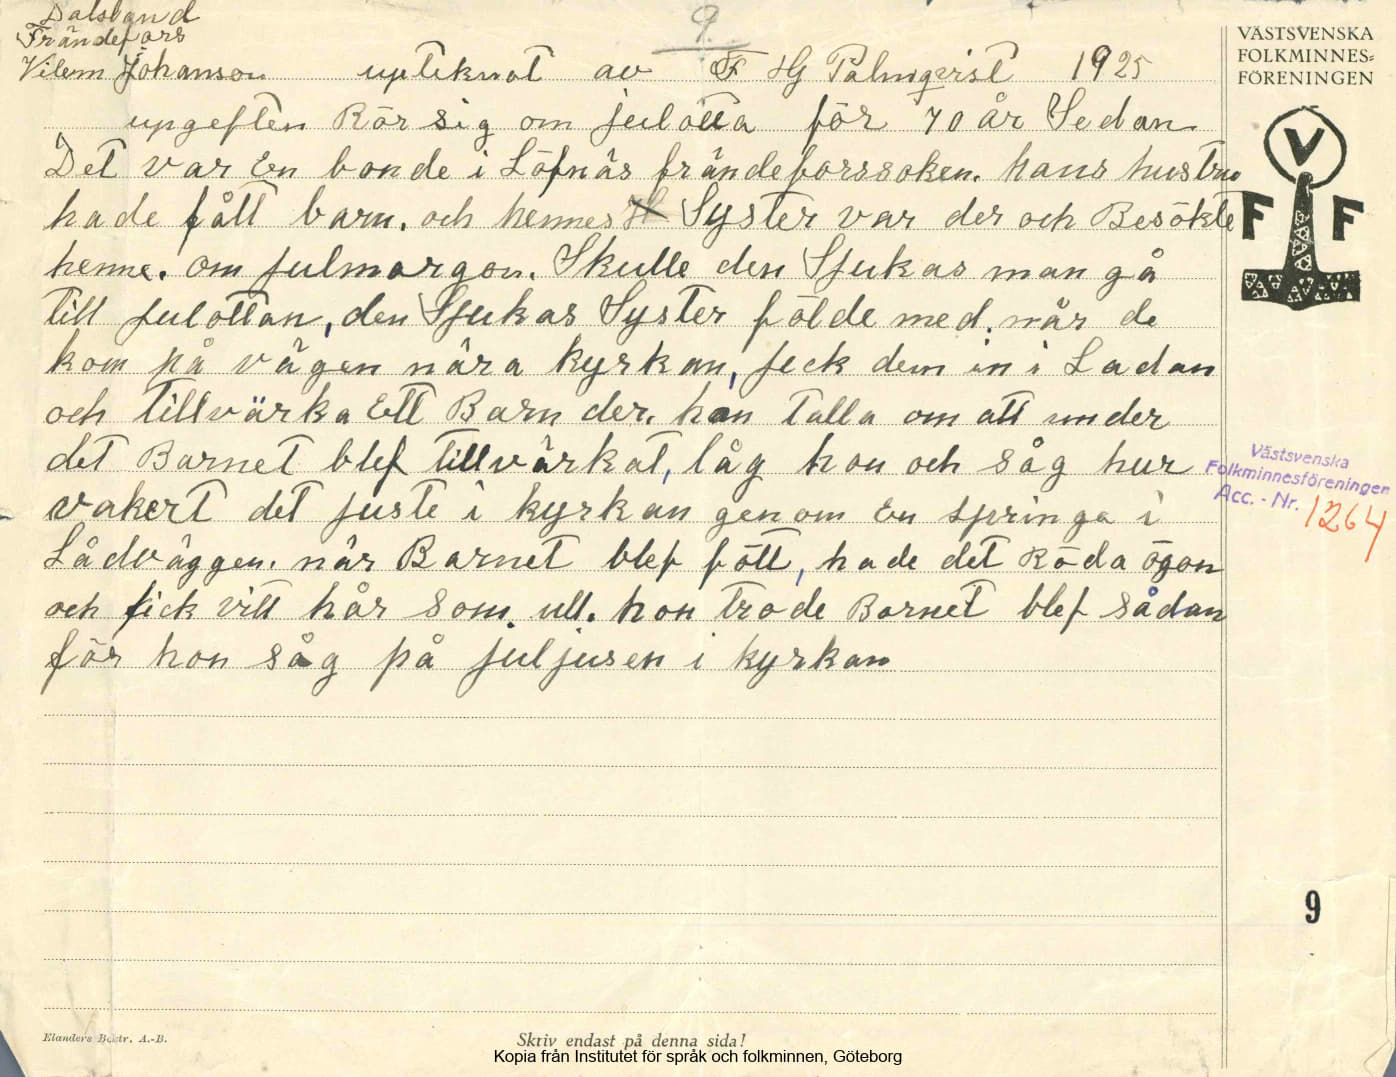 Dalsland
Frändefors
9.
Vilem Johanson upteknat av F HG Palmqvist 1925
upgeften Rör sig om julotta för 70 år Sedan
Det var En bonde i Löfnäs frändeforssoken. hans hustru
hade fått barn. och hennes Syster var der och Besökte
henne. om julmorgon. Skulle den Sjukas man gå
till julottan, den Sjukas Syster földe med. når de
kom på vägen nära kyrkan, feck dem in i Ladan
och tillvärka Ett Barn der. hon talla om att under
det Barnet blef tillvärkat, låg hon och såg hur
vakert det juste i kyrkan genom En springa i
Lådväggen. när Barnet blef fött, hade det Röda ögon
och fick vitt hår som. ull. hon trode Barnet blef sådan
för hon såg på juljusen i kyrkan
VÄSTSVENSKA
FOLKMINNES=
FÖRENINGEN
V
F F
Västsvenska
Folkminnesföreningen
Acc. - Nr. 1264
9
Elanders Boktr. A.-B.
Skriv endast på denna sida!
Kopia från Institutet för språk och folkminnen, Göteborg